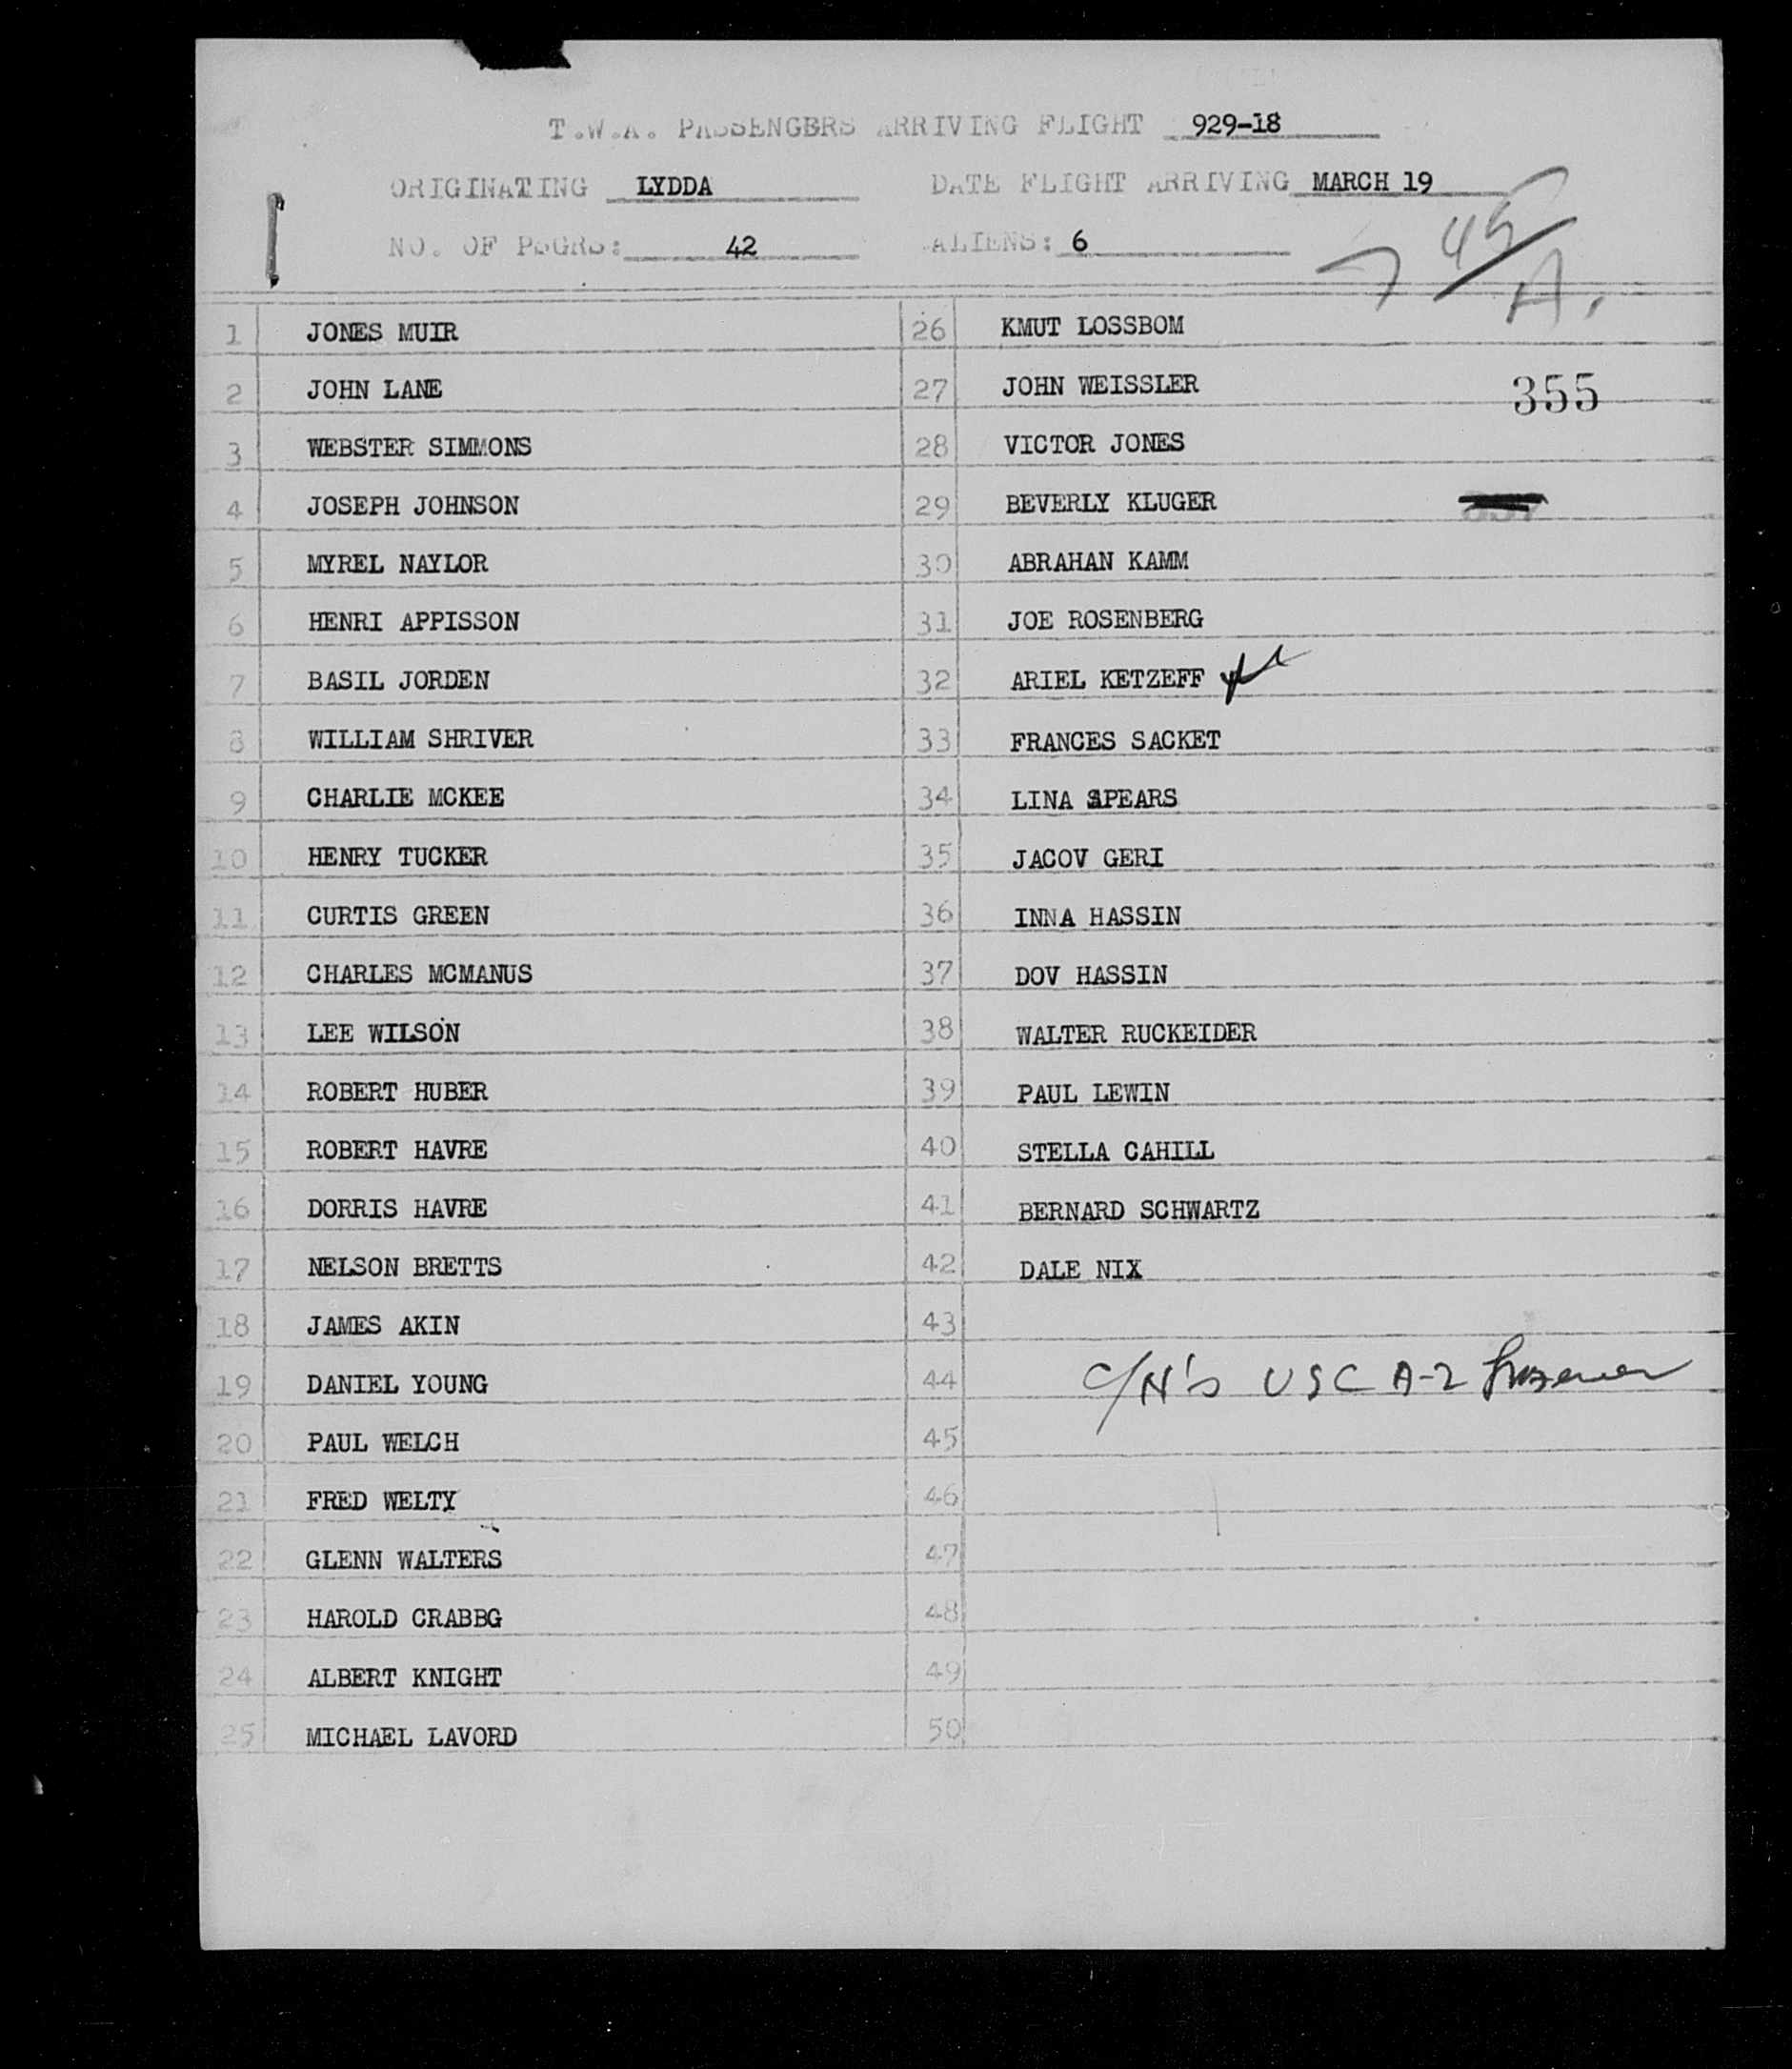 T.W.A. PASSENGERS ARRIVING FLIGHT 929-18
ORIGINATING LYDDA DATE FLIGHT ARRIVING MARCH 19
NO. OF PSGRS: 42 ALIENS: 6
45
A.
1 JONES MUIR
2 JOHN LANE
3 WEBSTER SIMMONS
4 JOSEPH JOHNSON
5 MYREL NAYLOR
6 HENRI APPISSON
7 BASIL JORDEN
8 WILLIAM SHRIVER
9 CHARLIE MCKEE
10 HENRY TUCKER
11 CURTIS GREEN
12 CHARLES MCMANUS
13 LEE WILSON
14 ROBERT HUBER
15 ROBERT HAVRE
16 DORRIS HAVRE
17 NELSON BRETTS
18 JAMES AKIN
19 DANIEL YOUNG
20 PAUL WELCH
21 FRED WELTY
22 GLENN WALTERS
23 HAROLD CRABBG
24 ALBERT KNIGHT
25 MICHAEL LAVORD
26 KMUT LOSSBOM
27 JOHN WEISSLER
355
28 VICTOR JONES
29 BEVERLY KLUGER
30 ABRAHAN KAMM
31 JOE ROSENBERG
32 ARIEL KETZEFF
33 FRANCES SACKET
34 LINA SPEARS
35 JACOV GERI
36 INNA HASSIN
37 DOV HASSIN
38 WALTER RUCKEIDER
39 PAUL LEWIN
40 STELLA CAHILL
41 BERNARD SCHWARTZ
42 DALE NIX
43
44 C/N's USC A-2
45
46
47
48
49
50